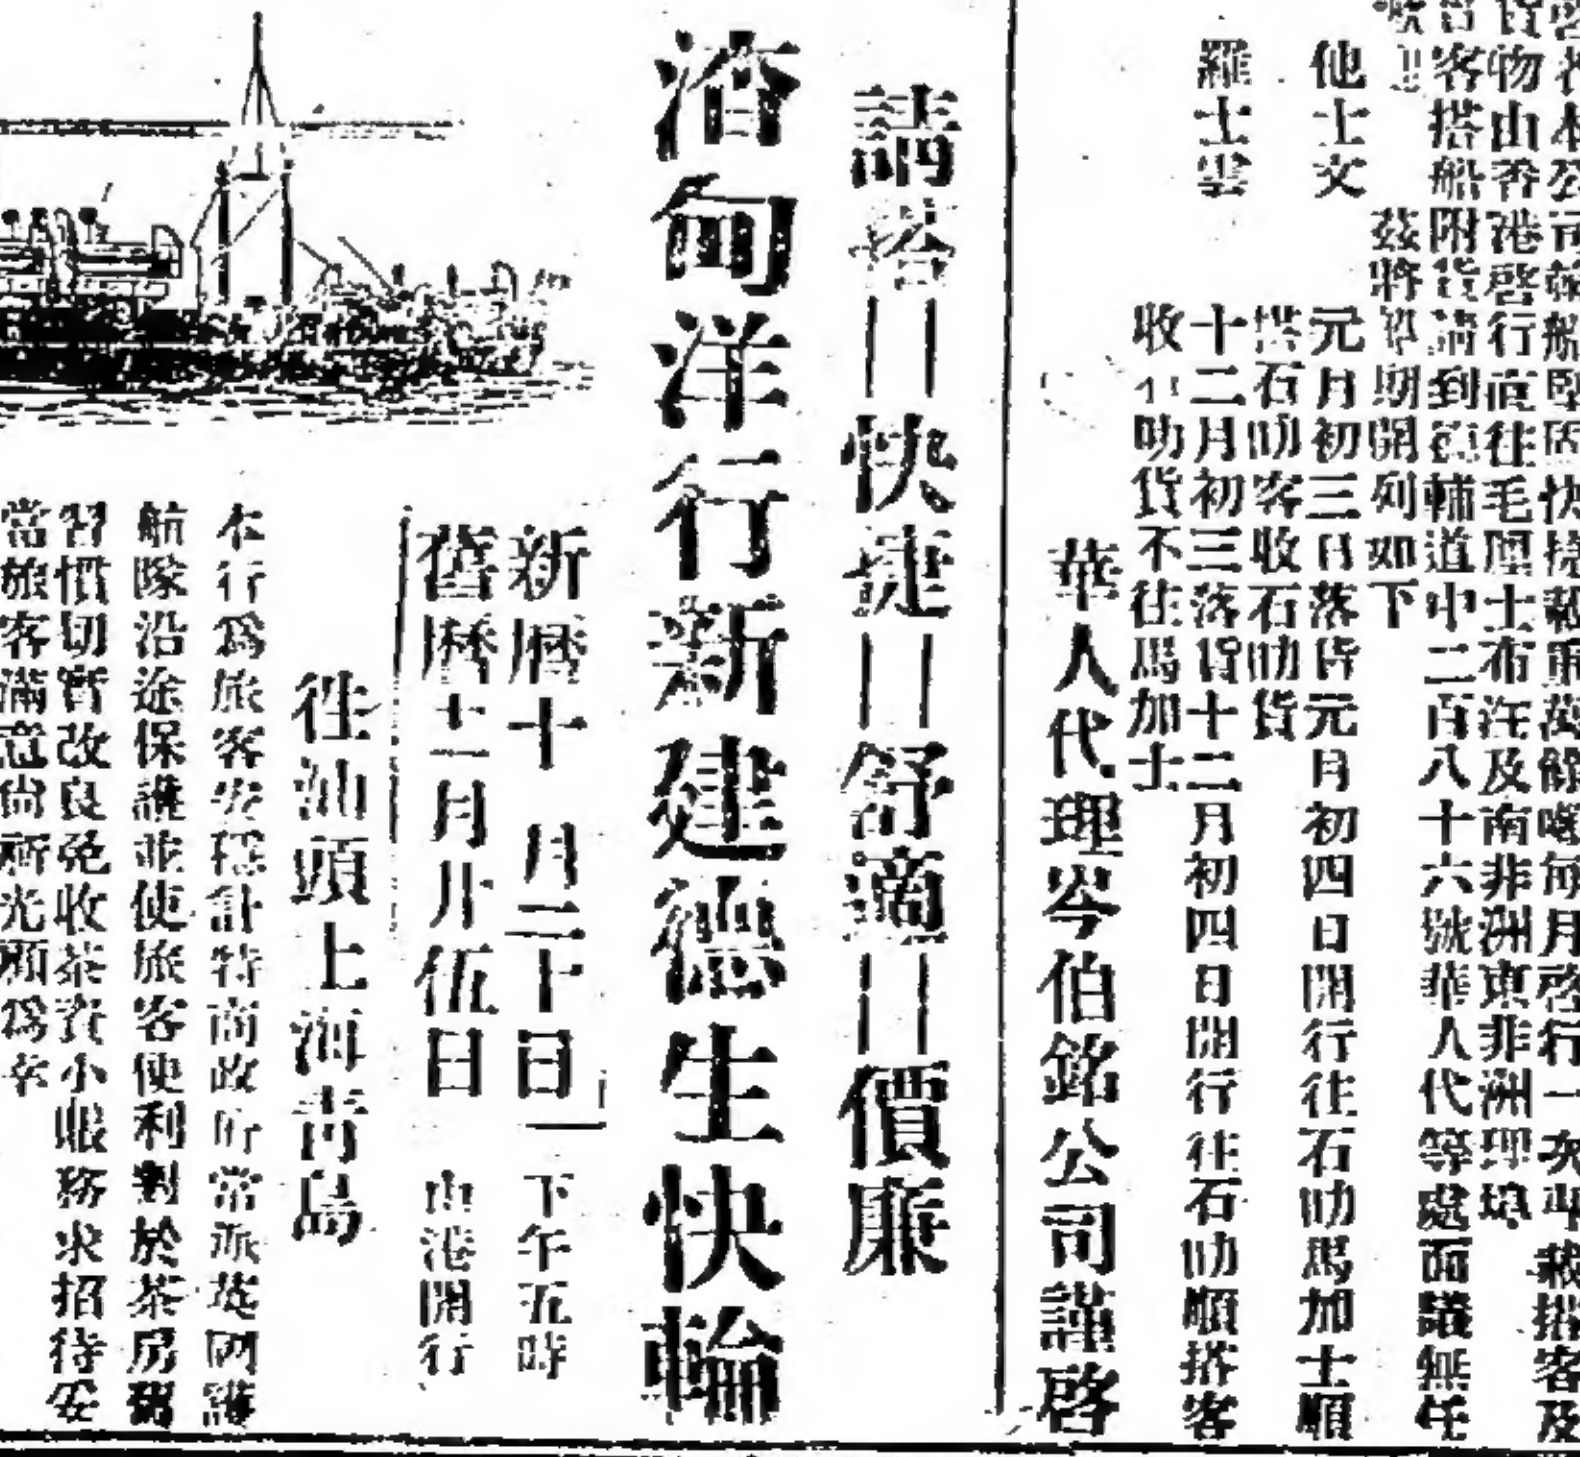 貨物由香港啓行直往毛厘士布汪及南非洲東非洲理埠
客搭船附貨請到德輔道中二百八十六號華人代等處面議無任
茲將船期開列如下
他士文 元月初三日落貨元月初四日開行往石叻馬加士順
搭石叻客收石叻貨
羅士雲 十二月初三落貨十二月初四日開行往石叻順搭客
收石叻貨不往馬加士
華人代理岑伯銘公司謹啓
請搭||快捷||舒適||價廉
渣甸洋行新建德生快輪
新曆十 月三十日 下午五時
舊曆十一月廿伍日 由港開行
往汕頭上海靑島
本行爲旅客安穩計特商政府常派英國護
航隊沿途保護並使旅客便利對於茶房舊
習慣切實改良免收茶資小賬務求招待妥
當旅客滿意尙祈光顧爲幸